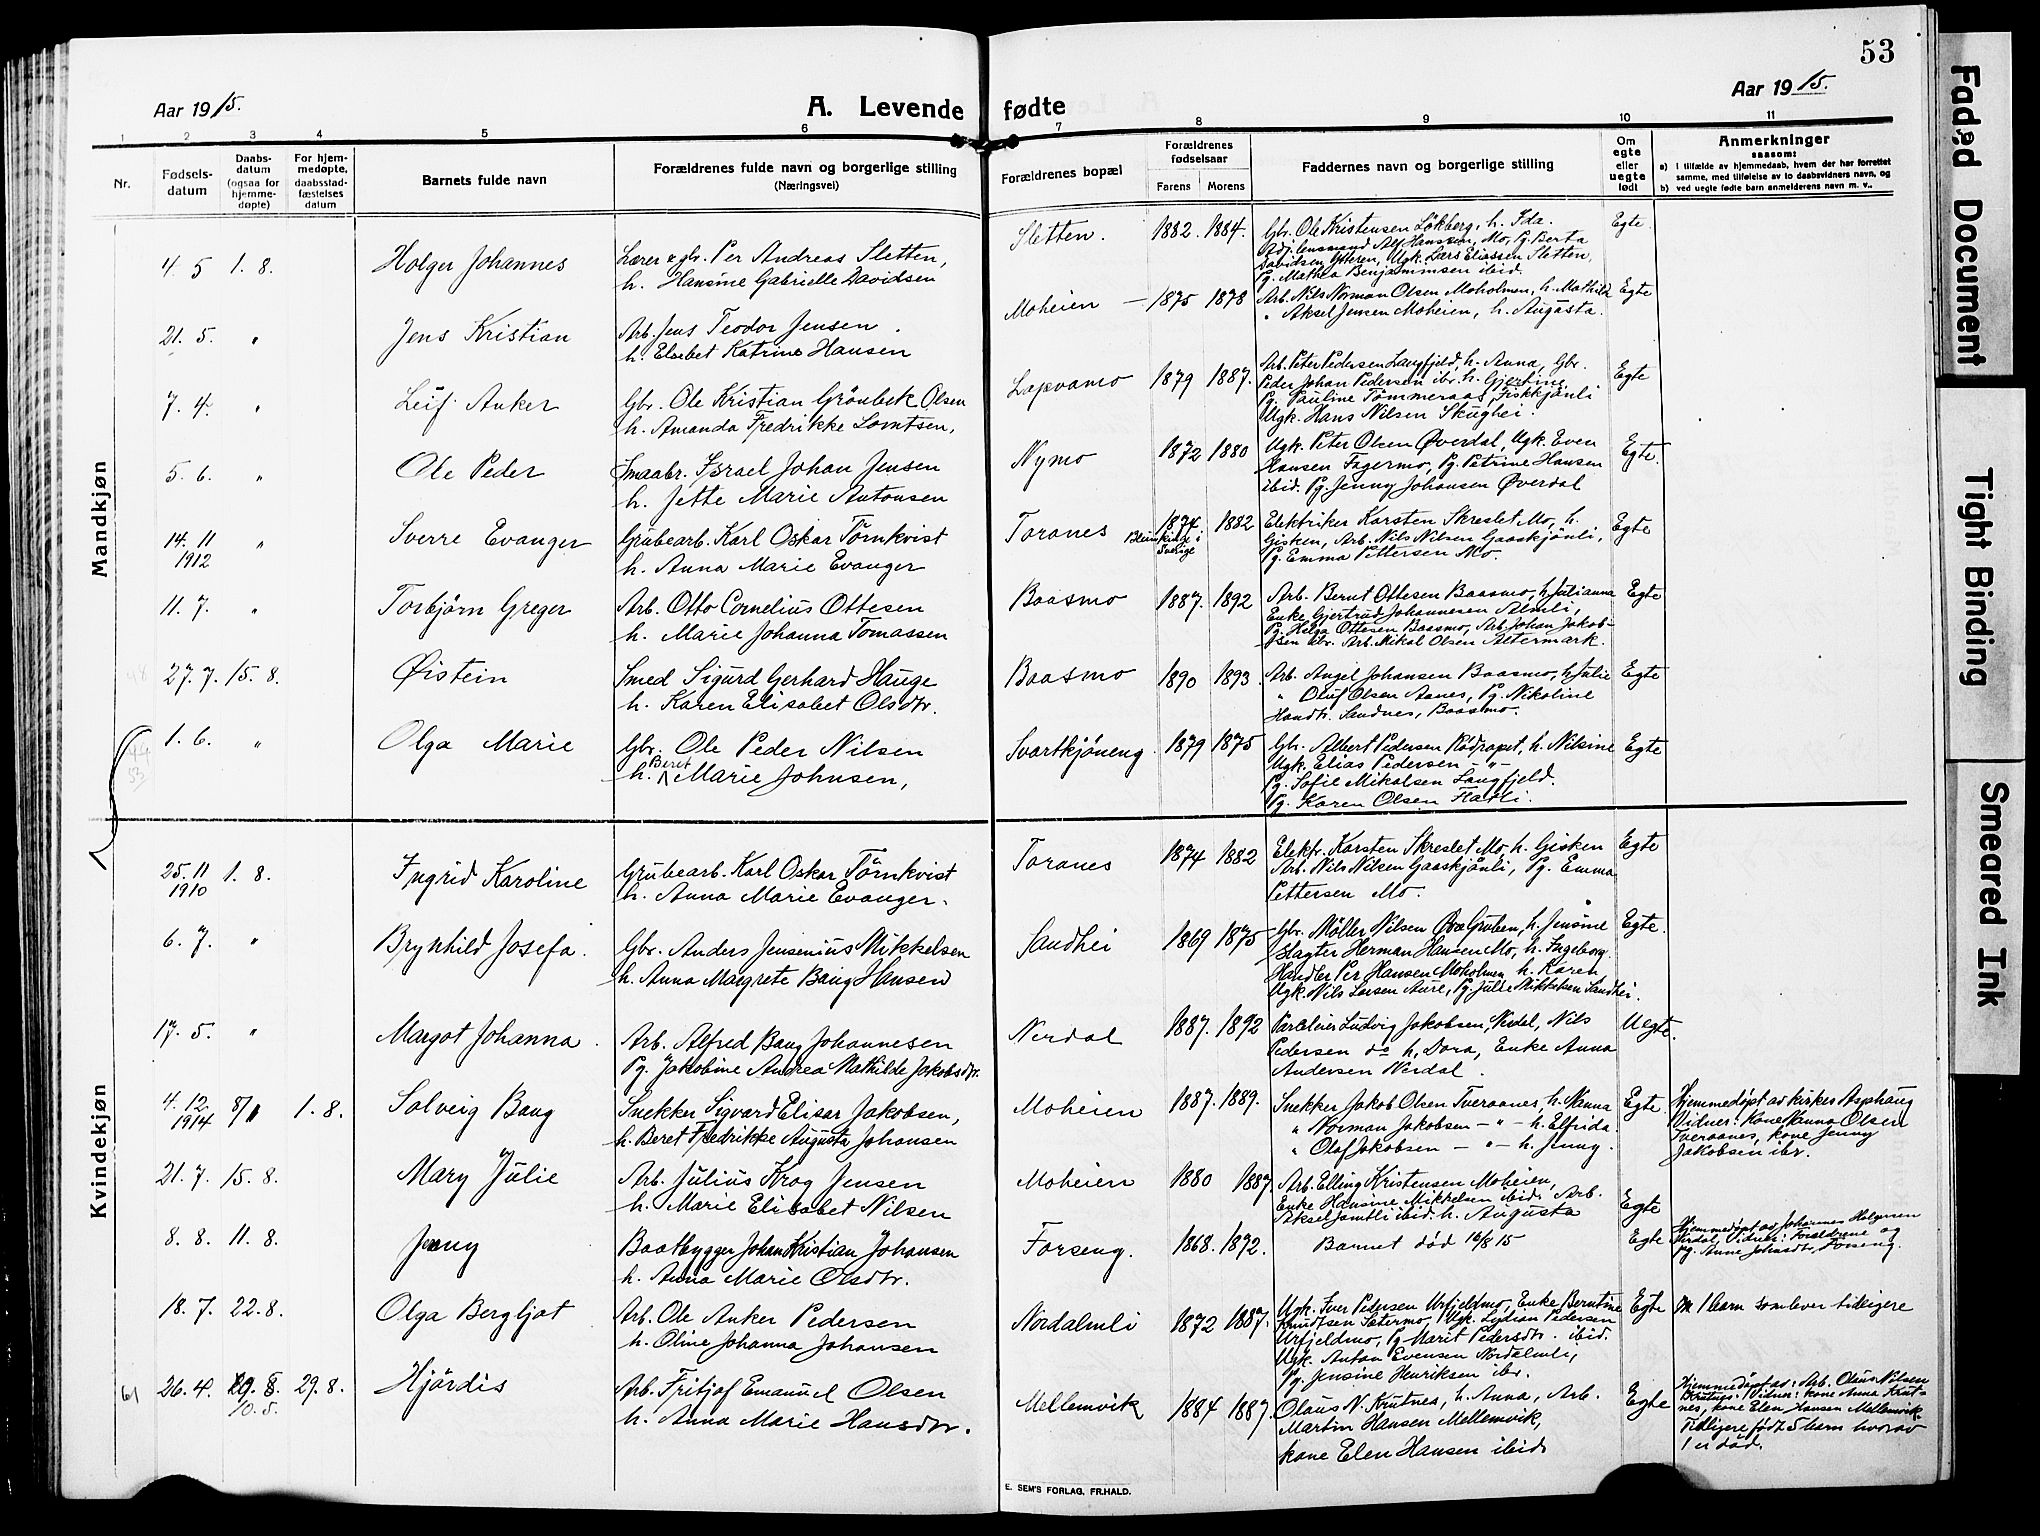 53
Aar 1915.
A. Levende fødte
Aar 1915.
1 2 3 4 5 6 7 8 9 10 11
Nr.
Fødsels-
datum
Daabs-
datum
(ogsaa for
hjemme-
døpte)
For hjem-
medøpte,
daabsstad-
fæstelses
datum
Barnets fulde navn
Forældrenes fulde navn og borgerlige stilling
(Næringsvei)
Forældrenes bopæl
Forældrenes
fødselsaar
Farens Morens
Faddernes navn og borgerlige stilling
Om
egte
eller
uegte
født
Anmerkninger
saasom:
a) i tilfælde av hjemmedaab, hvem der har forrettet
samme, med tilføielse av to daabsvidners navn, og
b) ved uegte fødte barn anmelderens navn m. v..
Mandkjøn
4. 5 1. 8. Holger Johannes
Lærer & gbr. Per Andreas Sletten,
h. Hansine Gabrielle Davidsen
Sletten. 1882. 1884.
Gbr. Ole Kristensen Lökberg, h. Ida.
Alf Hanssen, Mo, Pg. Berta
Davidsen Ytteren, Ugk. Lars Eliassen Sletten,
Pg. Mathea Benjaminsen ibid.
Egte
21. 5. " Jens Kristian
Arb. Jens Teodor Jensen.
h. Elsebet Katrine Hansen
Moheien – 1875 1878
Arb. Nils Norman Olsen Moholmen, h. Mathild
" Aksel Jensen Moheien, h. Augusta.
Egte
7. 4. " Leif Anker
Gbr. Ole Kristian Grönbek Olsen
h. Amanda Fredrikke Lomtsen,
Lapvamo 1879 1887.
Arb. Peter Pedersen Langfjeld, h. Anna, Gbr.
Peder Johan Pedersen ibr. h. Gjertine,
Pg. Pauline Tömmeraas, Fiskkjönli
Ugk. Hans Nilsen Skughei.
Egte
5. 6. " Ole Peder
Smaabr. Israel Johan Jensen
h. Jette Marie Antonsen
Nymo 1872 1880
Ugk. Peter Olsen Øverdal, Ugk. Even
Hansen Fagermo, Pg. Petrine Hansen
ibid. Pg. Jenny Johansen Øverdal
Egte.
14. 11 1912 " Sverre Evanger
Grubearb. Karl Oskar Törnkvist
h. Anna Marie Evanger
Toranes 1874 1882
Elektriker Karsten Skreslet Mo, h.
Gisken, Arb. Nils Nilsen Gaaskjönli,
Pg. Emma Pettersen Mo.
Egte
11. 7. " Torbjörn Greger
Arb. Otto Cornelius Ottesen
h. Marie Johanna Tomassen
Baasmo 1887. 1892
Arb. Bernt Ottesen Baasmo, h. Julianna
Enke Gjertrud Johannesen Almli,
Pg. Helga Ottesen Baasmo, Arb. Johan Jakob-
sen ibr. Arb. Mikal Olsen Altermark.
Egte
27. 7. 15. 8. Øistein
Smed Sigurd Gerhard Hauge
h. Karen Elisabet Olsdtr.
Baasmo 1890 1893
Arb. Angel Johansen Baasmo, h. Julie
" Oluf Olsen Aanes, Pg. Nikoline
Handtr. Sandnes, Baasmo.
Egte
1. 6. " Olga Marie
Gbr. Ole Peder Nilsen
h. Beret Marie Johnsen,
Svartkjöneng. 1879 1875
Gbr. Albert Pedersen Rödrapet, h. Nilsine
Ugk. Elias Pedersen – " –
Pg. Sofie Mikalsen Langfjeld.
Pg. Karen Olsen Flatli.
Egte
Kvindekjøn
25. 11 1910 1. 8. Ingrid Karoline
Grubearb. Karl Oskar Törnkvist
h. Anna Marie Evanger.
Toranes 1874 1882
Elektr. Karsten Skreslet Mo, h. Gisken
Arb. Nils Nilsen Gaaskjönli, Pg. Emma
Pettersen Mo.
Egte
6. 7. " Brynhild Josefa.
Gbr. Anders Jensenius Mikkelsen
h. Anna Margrete Baug Hansen
Sandhei 1869 1875
Gbr. Möller Nilsen Gruben, h. Jensine
Slagter Herman Hansen Mo, h. Ingeborg.
Handler Per Hansen Moholmen h. Karen,
Ugk. Nils Larsen Aure, Pg. Julie Mikkelsen Sandhei.
Egte.
17. 5. " Margot Johanna.
Arb. Alfred Baug Johannesen
Pg. Jakobine Andrea Mathilde Jakobsdtr.
Nerdal 1887. 1892
Parceleier Ludvig Jakobsen, Nerdal, Nils
Pedersen do h. Dora, Enke Anna
Andersen Nerdal.
Uegte.
4. 12. 1914 1. 8. Solveig Baug
Snekker Sigvard Elisar Jakobsen,
h. Beret Fredrikke Augusta Johansen
Moheien 1887. 1889.
Snekker Jakob Olsen Tveraanes, h. Nanna
" Norman Jakobsen – " – h. Elfrida.
" Olaf Jakobsen – " – h. Jenny.
Egte.
Hjemmedøpt av kirkes. Asphaug
Vidner: Kone Nanna Olsen
Tveraanes, kone Jenny
Jakobsen ibr.
21. 7. 15. 8. Mary Julie
Arb. Julius Krog Jensen
h. Marie Elisabet Nilsen
Moheien 1880 1887.
Arb. Elling Kristensen Moheien,
Enke Hansine Mikkelsen ibid. Arb.
Aksel Jamtli ibid. h. Augusta
Egte
8. 8. 11. 8. Jenny
Baatbygger Johan Kristian Johansen
h. Anna Marie Olsdtr.
Forseng. 1868. 1872.
Barnet död 16/8 15
Egte
Hjemmedøpt av Johannes Holgersen
Nerdal, Vidner: Forældrene og
pg. Anne Johsdtr, Forseng.
18. 7. 22. 8. Olga Bergljot
Arb. Ole Anker Pedersen
h. Oline Johanna Johansen
Nordalmli 1872 1887.
Ugk. Iver Pedersen Urfjeldmo, Enke Berntine
Knudtsen Sætermo, Ugk. Lydian Pedersen
Urfjeldmo, Pg Marit Pedersdtr. ibid.
Ugk. Anton Evensen Nordalmli,
Pg. Jensine Henriksen ibr.
Egte
M 1 barn som lever tidligere
61 26. 4. 10. 5. 29. 8. Hjördis
Arb. Fritjof Emanuel Olsen
h. Anna Marie Hansdtr.
Mellemvik 1884 1887.
Olaus N. Krutnes, h. Anna, Arb.
Martin Hansen Mellemvik,
kone Elen Hansen ibid.
Egte
Hjemmedøpt av: Arb. Olaus Nilsen
Krutnes. Vidner: kone Anna Krut-
nes, kone Elen Hansen Mellemvik.
Tidligere født 5 barn hvorav
1 er död.
E. SEM'S FORLAG, FR.HALD.
Faded Document
Tight Binding
Smeared Ink